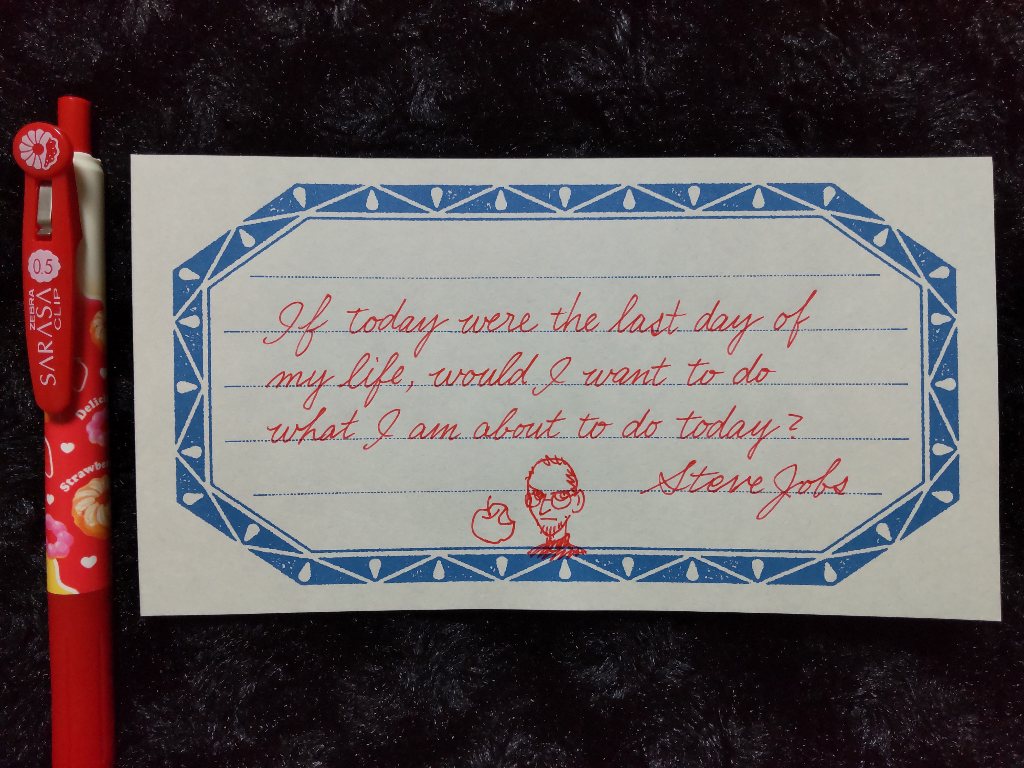 If today were the last day of
my life, would I want to do
what I am about to do today?
Steve Jobs
0.5
ZEBRA
SARASA
CLIP
Strawber